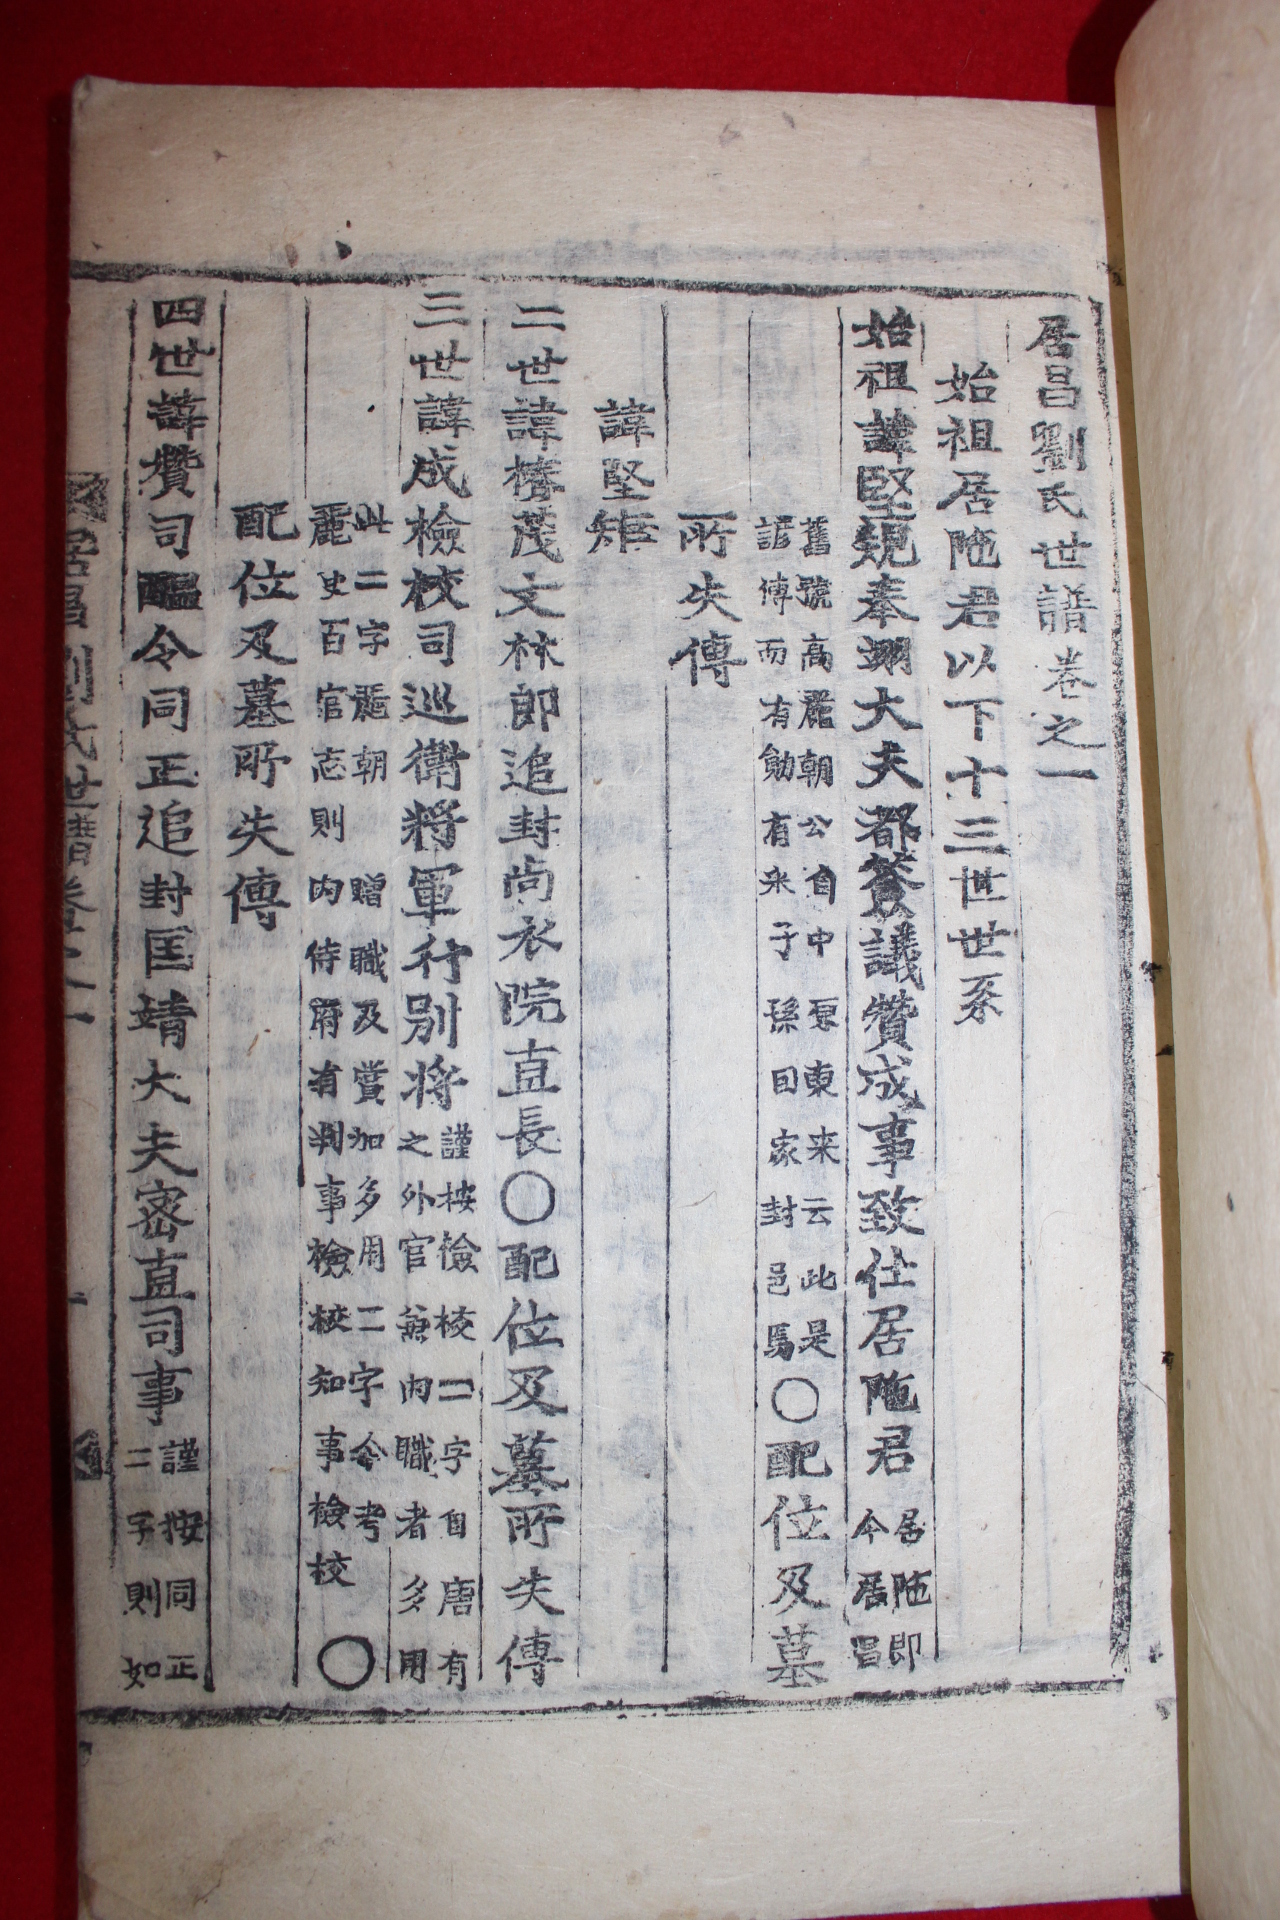 居昌劉氏世譜卷之一
始祖居陁君以下十三世世系
始祖諱堅規奉翊大夫都僉議贊成事致仕居陁君
居陁即
今居昌
舊號高麗朝公自中原東来云此是
諺傳而有勛有采子孫回家封邑焉
○配位及墓
所失傳
諱堅矩
二世諱椿茂文林郎追封尚衣院直長○配位及墓所失傳
三世諱成檢校司巡衛將軍行別將
謹按檢校二字自唐有
之外官兼内職者多用
此二字麗朝贈職及賞加多用二字今考
麗史百官志則内侍府有判事檢校知事檢校
○
配位及墓所失傳
四世諱贊司醞令同正追封匡靖大夫密直司事
謹按同正
二字則如
居昌劉氏世譜卷之一
一